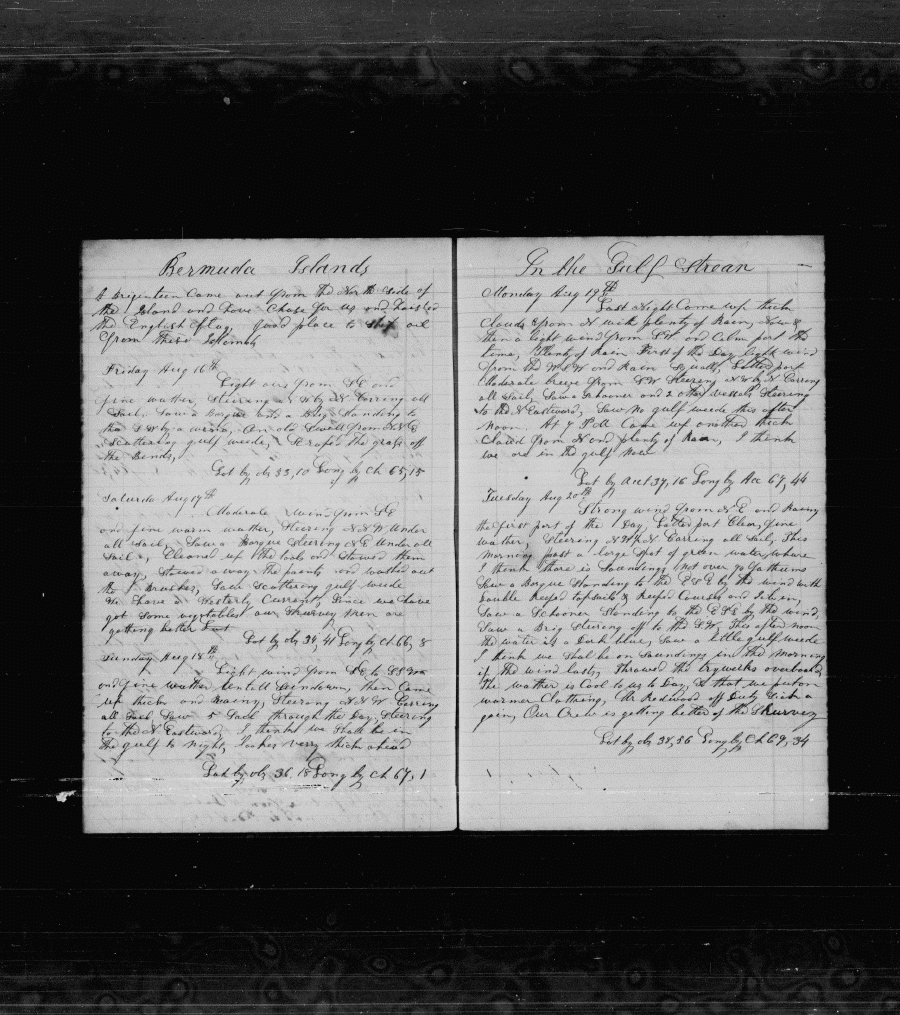 Bermuda Islands
A Brigenteen Came out from the North Side of
the Island and Gave Chase for us and haisted
the English flag, good place to Ship oil
from These Islands
Friday Aug 16th
Light airs from S E and
fine wather, Steering N W by N Carring all
Sail, Saw a Barque and a Brig Standing to
the S W by a wind, An old Swell from N N E
Scattering gulf weede, Scrape the grass off
the Bends,
Lat by ob 33,10 Long by Ch 65,15
Saturda Aug 17th
Moderate wind from S E
and fine warm wather, Steering N N W Under
all Sail, Saw a Barque Steering N E Under all
Sail, Cleaned up the tools and Stowed them
away, Stowed away the paints and washed out
the Brushes, Saw Scattering gulf weede
We have a Westerly Current, Since we have
got Some vegitables our Skurvey men are
getting better fast
Lat by ob 34,41 Long by Ch 66,8
Sunday Aug 18th
Light wind from S E to S S W
and fine wather Untill Sundown, then Came
up thick and Rainy, Steering N N W Carring
all Sail Saw 5 Sail through the Day, Steering
to the N Eastward, I think we Shall be in
the gulf to night, lookes very thick ahead
Lat by ob 36,18 Long by Ch 67,1
In the Gulf Strean
Monday Aug 19th
Last Night Came up thick
Clouds from N with plenty of Rain, Now &
then a light wind from S W and Calm part the
time, Plenty of Rain First of the Day light wind
from the W S W and Rain Squalls, Latter part
Moderate breeze from S W Steering N W by N Carring
all Sail, Saw a Schooner and 2 other vessels Steering
to the N Eastward, Saw No gulf weede this after
Noon. At 7 P.M. Came up another thick
Cloud from N and plenty of Rain, I think
we are in the gulf Now
Lat by act 37,16 Long by Acc 67,44
Tuesday Aug 20th
Strong wind from N E and Rainy
the first part of the Day, Latter part Clear, fine
wather, Steering N W by N Carring all Sail, This
Morning past a large Spot of green water, where
I think there is Soundings, Not over 70 fathoms
Saw a Barque Standing to the E S E by the wind with
Double Reefed topsails & Reefed Courses and Jib on,
Saw a Schooner Standing to the E S E by the wind,
Saw a Brig Steering off to the S W, This after noon
the water is a Dark blue, Saw a little gulf weede
I think we Shal be on Soundings in the Morning
if the wind lasts, Throwed the tryworks overboard,
The wather is Cool to us to Day, So that we put on
warmer Clothing, Mr Redmond off Duty Sick a
gain, Our Crew is getting better of the Skurvey
Lat by ob 38,56 Long by Ch 69,34